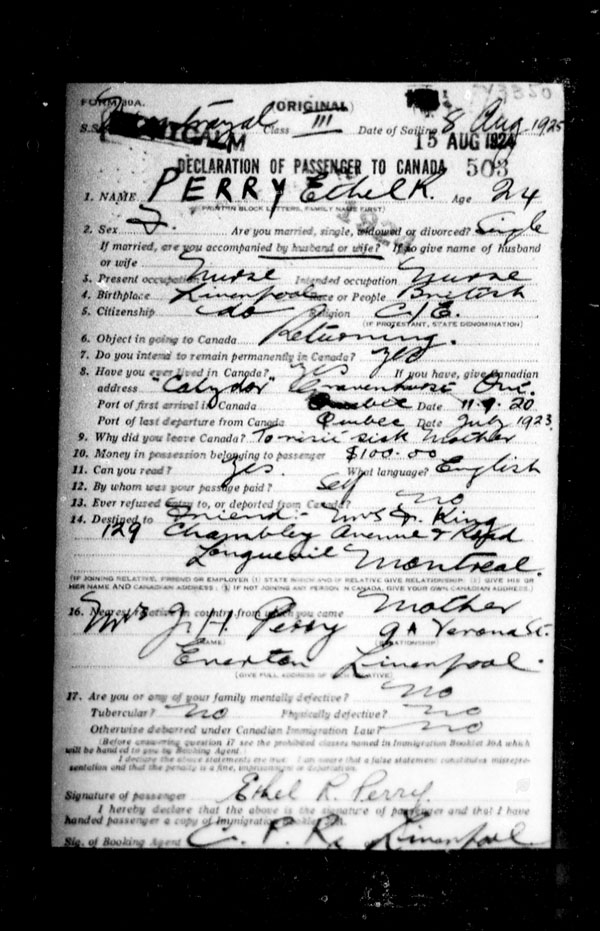 FORM 30A. (ORIGINAL)
S.S. Montroyal Class III Date of Sailing 8 Aug. 1925
15 AUG 1924
DECLARATION OF PASSENGER TO CANADA 503
1. NAME PERRY Ethel R. Age 24
(PRINT IN BLOCK LETTERS, FAMILY NAME FIRST)
2. Sex F. Are you married, single, widowed or divorced? Single
If married, are you accompanied by husband or wife? If so give name of husband
or wife
3. Present occupation Nurse Intended occupation Nurse
4. Birthplace Liverpool Race or People British
5. Citizenship do Religion C/E.
(IF PROTESTANT, STATE DENOMINATION)
6. Object in going to Canada Returning.
7. Do you intend to remain permanently in Canada? Yes
8. Have you ever lived in Canada? Yes If you have, give Canadian
address "Calydor" Gravenhurst Ont.
Port of first arrival in Canada Quebec Date 11.9.20
Port of last departure from Canada Quebec Date July 1923
9. Why did you leave Canada? To visit sick mother
10. Money in possession belonging to passenger $100.00
11. Can you read? Yes. What language? English
12. By whom was your passage paid? Self
13. Ever refused entry to, or deported from Canada? No
14. Destined to Friend:- Mrs F. King
129 Chambley Avenue & Road
Longueuil Montreal.
(IF JOINING RELATIVE, FRIEND OR EMPLOYER (1) STATE WHICH AND IF RELATIVE GIVE RELATIONSHIP: (2) GIVE HIS OR
HER NAME AND CANADIAN ADDRESS: (3) IF NOT JOINING ANY PERSON IN CANADA, GIVE YOUR OWN CANADIAN ADDRESS.)
16. Nearest relative in country from which you came Mother
Mrs J. H. Perry 9A Verona St.
(NAME) (RELATIONSHIP)
Everton Liverpool.
(GIVE FULL ADDRESS OF SUCH RELATIVE)
17. Are you or any of your family mentally defective? No
Tubercular? No Physically defective? No
Otherwise debarred under Canadian Immigration Law? No
(Before answering question 17 see the prohibited classes named in Immigration Booklet 30A which
will be handed to you by Booking Agent.)
I declare the above statements are true. I am aware that a false statement constitutes misrepre-
sentation and that the penalty is a fine, imprisonment or deportation.
Signature of passenger Ethel R. Perry.
I hereby declare that the above is the signature of passenger and that I have
handed passenger a copy of Immigration Booklet 30A.
Sig. of Booking Agent C. P. R. Liverpool